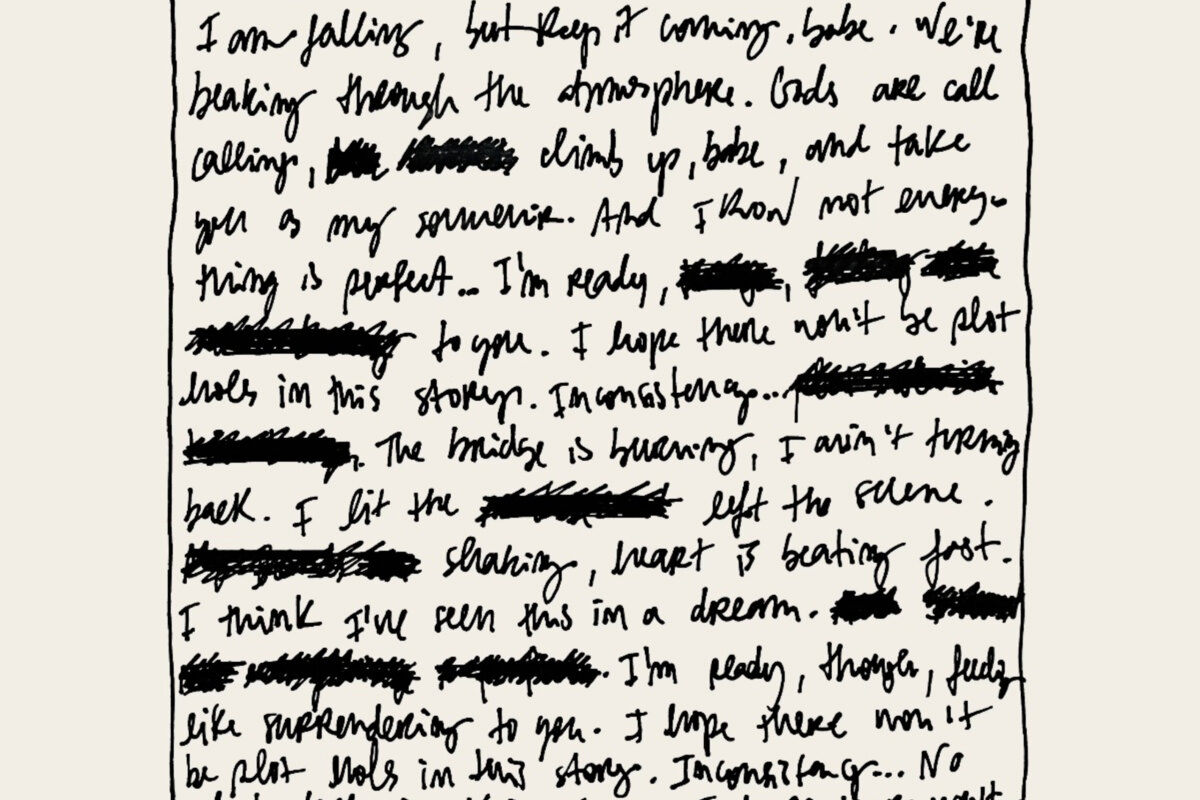 I am falling, but keep it coming, babe. We're
beaking through the atmosphere. Gods are call
calling, climb up, babe, and take
you as my souvenir. And I know not every-
thing is perfect... I'm ready,
to you. I hope there won't be plot
hols in this story. Inconsistency...
The bridge is burning, I ain't turning
back. I lit the left the scene.
shaking, heart is beating fast.
I think I've seen this in a dream.
I'm ready, though, feels
like surrendering to you. I hope there won't
be plot hols in this story. Inconsistency... No